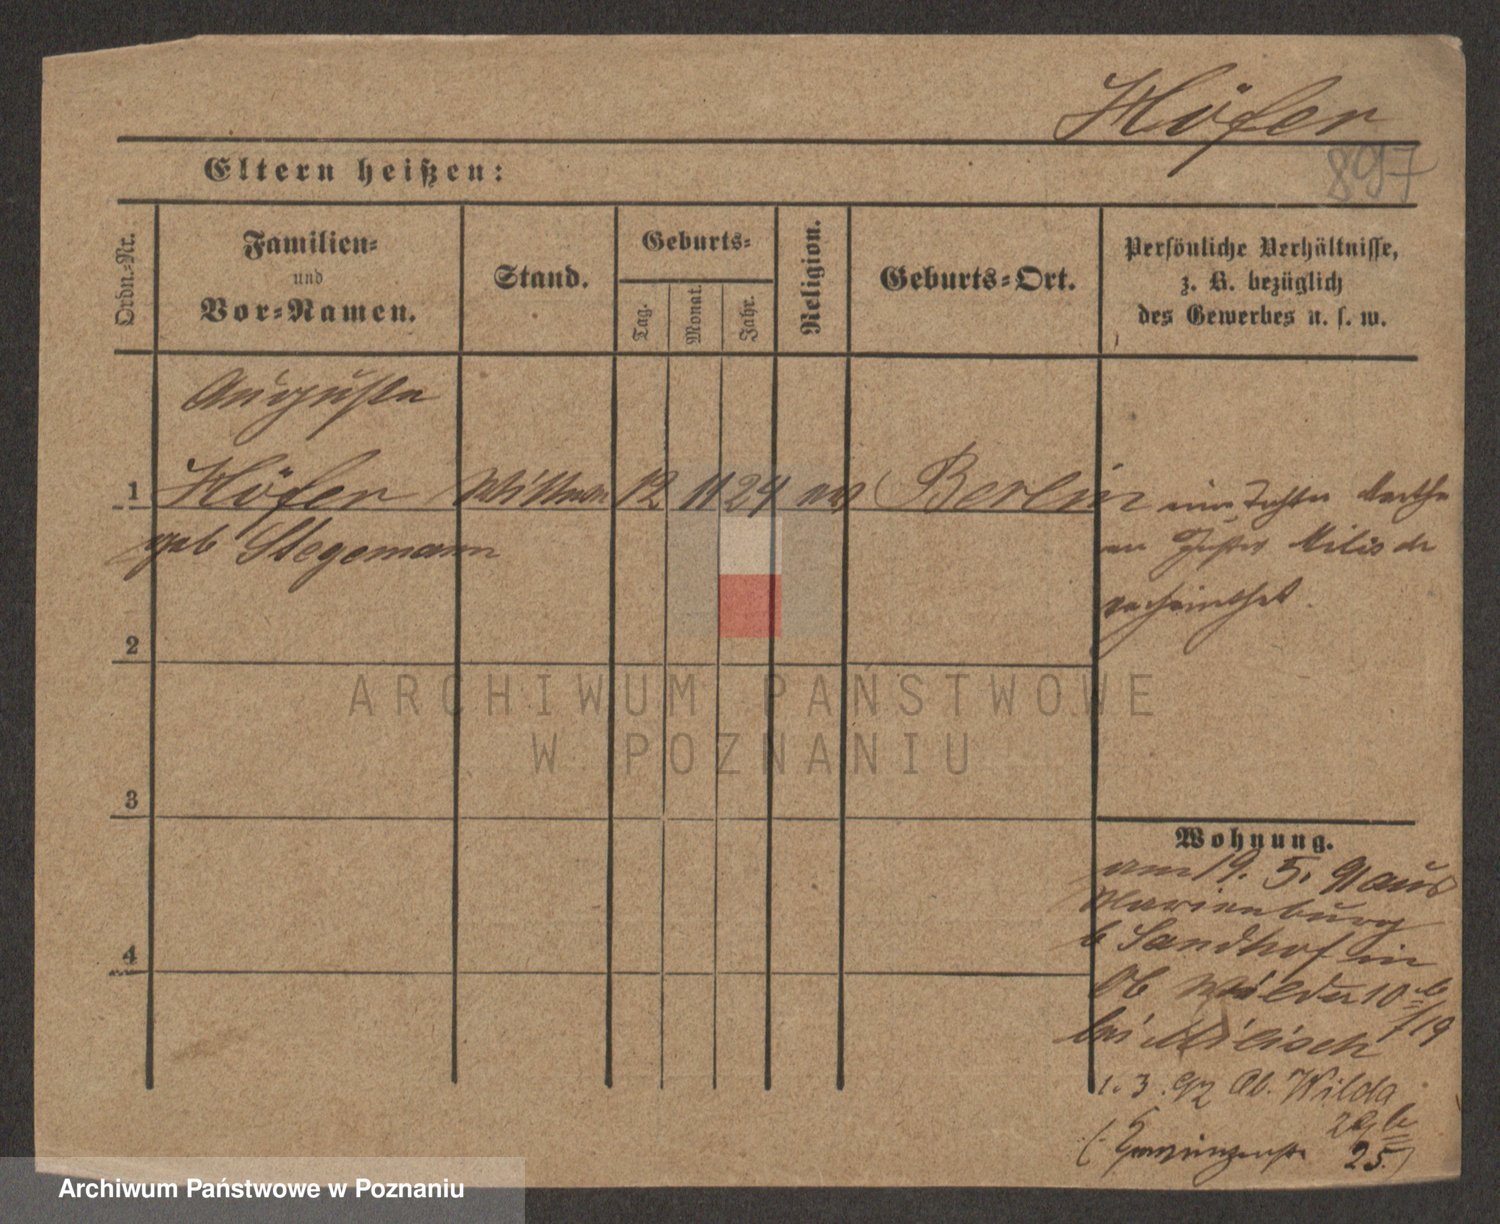 Höfer
897
Eltern heißen:
Ordn.-Nr.
Familien-
und
Vor-Namen.
Stand.
Geburts-
Tag.
Monat.
Jahr.
Religion.
Geburts-Ort.
Persönliche Verhältnisse,
z. B. bezüglich
des Gewerbes u. s. w.
Auguste
1 Höfer Wittwe 12 11 24 ev Berlin
geb Stegemann
eine Tochter Marthe
an Milisch
verheirathet.
2
3
4
Wohnung.
am 19. 5. 91 aus
Marienburg
b Sandhof in
Ob Wilda 10 b
bei Milisch /19
1. 3. 92 Ob. Wilda
29 b
25
ARCHIWUM PAŃSTWOWE
W POZNANIU
Archiwum Państwowe w Poznaniu